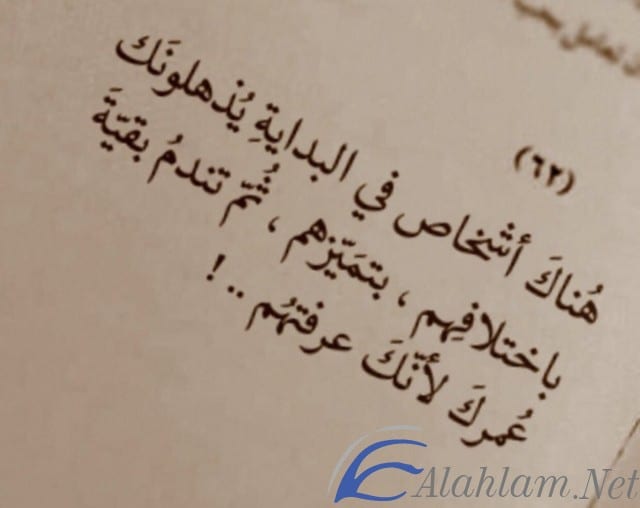 (٦٢)
هُناكَ أشخاص في البدايةِ يُذهلونَك
باختلافِهم ، بتمَيّزهم ، ثُمّ تندمُ بقيّةَ
عُمركَ لأنّكَ عرفتهُم ..!
Alahlam.Net